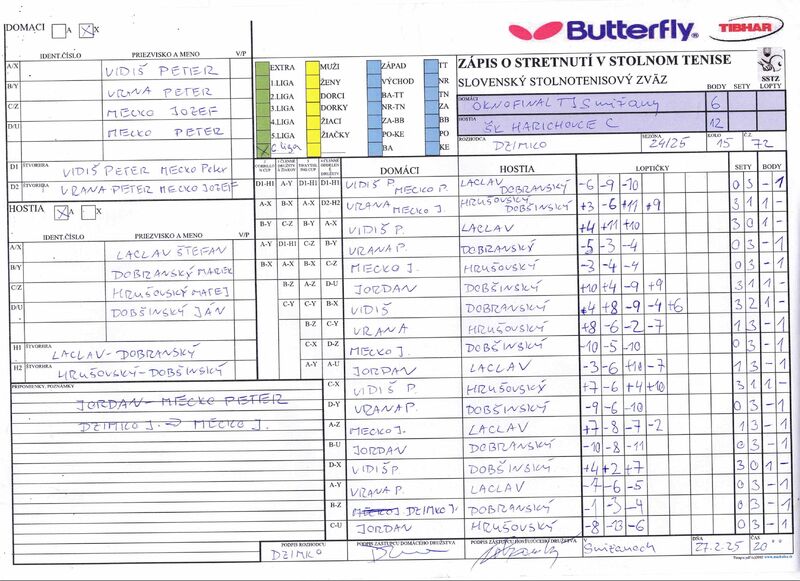 DOMACI A X
Butterfly®
TIBHAR
IDENT.ČÍSLO PRIEZVISKO A MENO V/P
A/X VIDIŠ PETER
B/Y VRNA PETER
C/Z MECKO JOZEF
D/U MECKO PETER
D1 ŠTVORHRA VIDIŠ PETER MECKO PETER
D2 ŠTVORHRA VRANA PETER MECKO JOZEF
HOSTIA A X
IDENT.ČÍSLO PRIEZVISKO A MENO V/P
A/X LACLAV ŠTEFAN
B/Y DOBRANSKÝ MAREK
C/Z HRUŠOVSKÝ MATEJ
D/U DOBŠINSKÝ JÁN
H1 ŠTVORHRA LACLAV-DOBRANSKÝ
H2 ŠTVORHRA HRUŠOVSKÝ-DOBŠINSKÝ
PRIPOMIENKY, POZNÁMKY
JORDAN - MECKO PETER
DZIMKO J. → MECKO J.
EXTRA MUŽI ZÁPAD TT
1.LIGA ŽENY VÝCHOD NR
2.LIGA DORCI BA-TT ZA
3.LIGA DORKY NR-TN ZA
4.LIGA ŽIACI ZA-BB BB
5.LIGA ŽIAČKY PO-KE PO
X C liga BA KE
ZÁPIS O STRETNUTÍ V STOLNOM TENISE
SLOVENSKÝ STOLNOTENISOVÝ ZVÄZ
SSTZ
BODY SETY LOPTY
DOMÁCI OKNOFINAL TJ Smižany 6
HOSTIA ŠK HARICHOVCE C 12
ROZHODCA DZIMKO SEZÓNA 24/25 KOLO 15 Č.Z. 72
DOMÁCI HOSTIA LOPTIČKY SETY BODY
D1-H1 A-Y D1-H1 D1-H1 VIDIŠ P. MECKO P. LACLAV DOBRANSKÝ -6 -9 -10 0 3 - 1
A-X B-X A-X D2-H2 VRANA MECKO J. HRUŠOVSKÝ DOBŠINSKÝ +3 -6 +11 +9 3 1 1 -
B-Y C-Z B-Y A-X VIDIŠ P. LACLAV +4 +11 +10 3 0 1 -
A-Y D1-H1 C-Z B-Y VRANA P. DOBRANSKÝ -5 -3 -4 0 3 - 1
B-X A-X B-X C-Z MECKO J. HRUŠOVSKÝ -3 -4 -4 0 3 - 1
B-Z A-Z D-U JORDAN DOBŠINSKÝ +10 +4 -9 +9 3 1 1 -
C-Y C-Y B-X VIDIŠ DOBRANSKÝ +4 +8 -9 -4 +6 3 2 1 -
B-Z C-Y VRANA HRUŠOVSKÝ +8 -6 -2 -7 1 3 - 1
C-X D-Z MECKO J. DOBŠINSKÝ -10 -5 -10 0 3 - 1
A-Y A-U JORDAN LACLAV -3 -6 +10 -7 1 3 - 1
C-X VIDIŠ P. HRUŠOVSKÝ +7 -6 +4 +10 3 1 1 -
D-Y VRANA P. DOBŠINSKÝ -9 -6 -10 0 3 - 1
A-Z MECKO J. LACLAV +7 -8 -7 -2 1 3 - 1
B-U JORDAN DOBRANSKÝ -10 -8 -11 0 3 - 1
D-X VIDIŠ P. DOBŠINSKÝ +4 +2 +7 3 0 1 -
A-Y VRANA P. LACLAV -7 -6 -5 0 3 - 1
B-Z MECKO J DZIMKO J. DOBRANSKÝ -1 -3 -4 0 3 - 1
C-U JORDAN HRUŠOVSKÝ -8 -13 -6 0 3 - 1
PODPIS ROZHODCU DZIMKO
PODPIS ZÁSTUPCU DOMÁCEHO DRUŽSTVA
PODPIS ZÁSTUPCU HOSŤUJÚCEHO DRUŽSTVA
V Smižanoch DŇA 27.2.25 ČAS 20°°